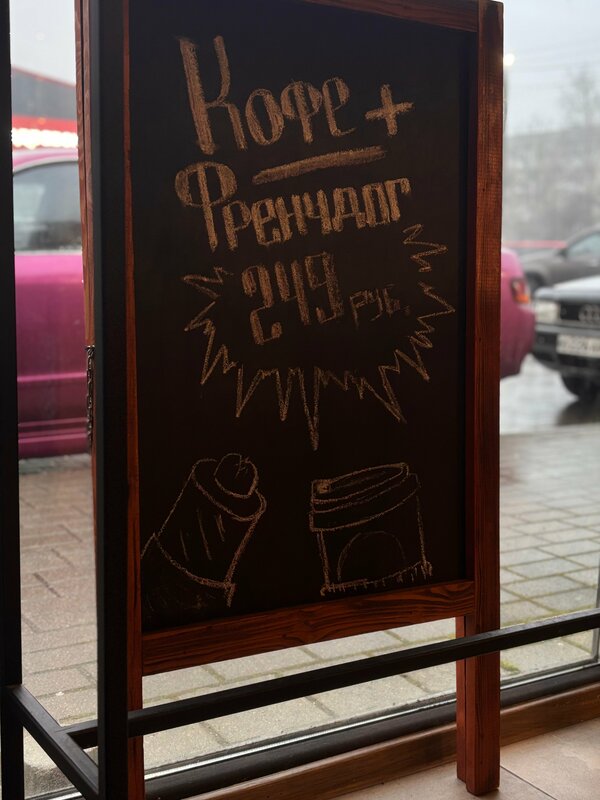 Кофе +
Френчдог
249 руб.